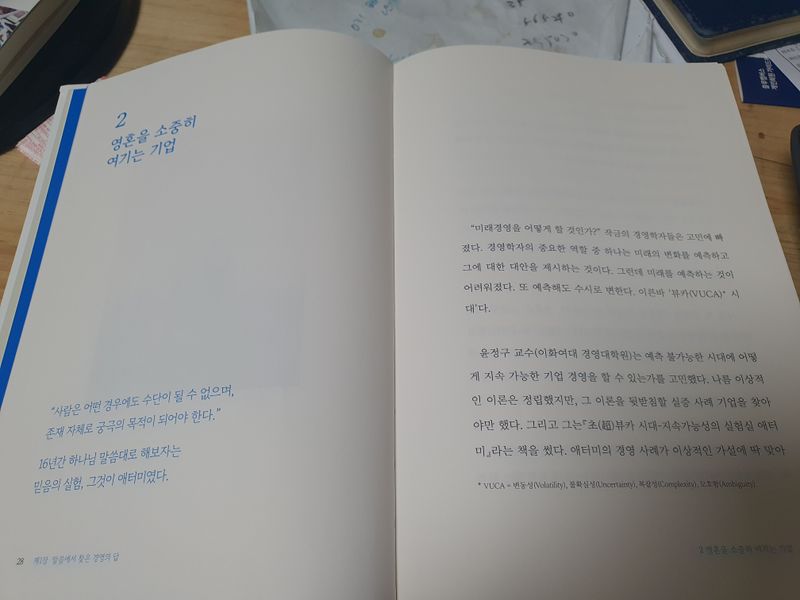 2
영혼을 소중히
여기는 기업
“사람은 어떤 경우에도 수단이 될 수 없으며,
존재 자체로 궁극의 목적이 되어야 한다.”
16년간 하나님 말씀대로 해보자는
믿음의 실험, 그것이 애터미였다.
28 제1장 말씀에서 찾은 경영의 답
“미래경영을 어떻게 할 것인가?” 작금의 경영학자들은 고민에 빠
졌다. 경영학자의 중요한 역할 중 하나는 미래의 변화를 예측하고
그에 대한 대안을 제시하는 것이다. 그런데 미래를 예측하는 것이
어려워졌다. 또 예측해도 수시로 변한다. 이른바 ‘뷰카(VUCA)* 시
대’다.
윤정구 교수(이화여대 경영대학원)는 예측 불가능한 시대에 어떻
게 지속 가능한 기업 경영을 할 수 있는가를 고민했다. 나름 이상적
인 이론은 정립했지만, 그 이론을 뒷받침할 실증 사례 기업을 찾아
야만 했다. 그리고 그는『초(超)뷰카 시대-지속가능성의 실험실 애터
미』라는 책을 썼다. 애터미의 경영 사례가 이상적인 가설에 딱 맞아
* VUCA = 변동성(Volatility), 불확실성(Uncertainty), 복잡성(Complexity), 모호함(Ambiguity)
2 영혼을 소중히 여기는 기업